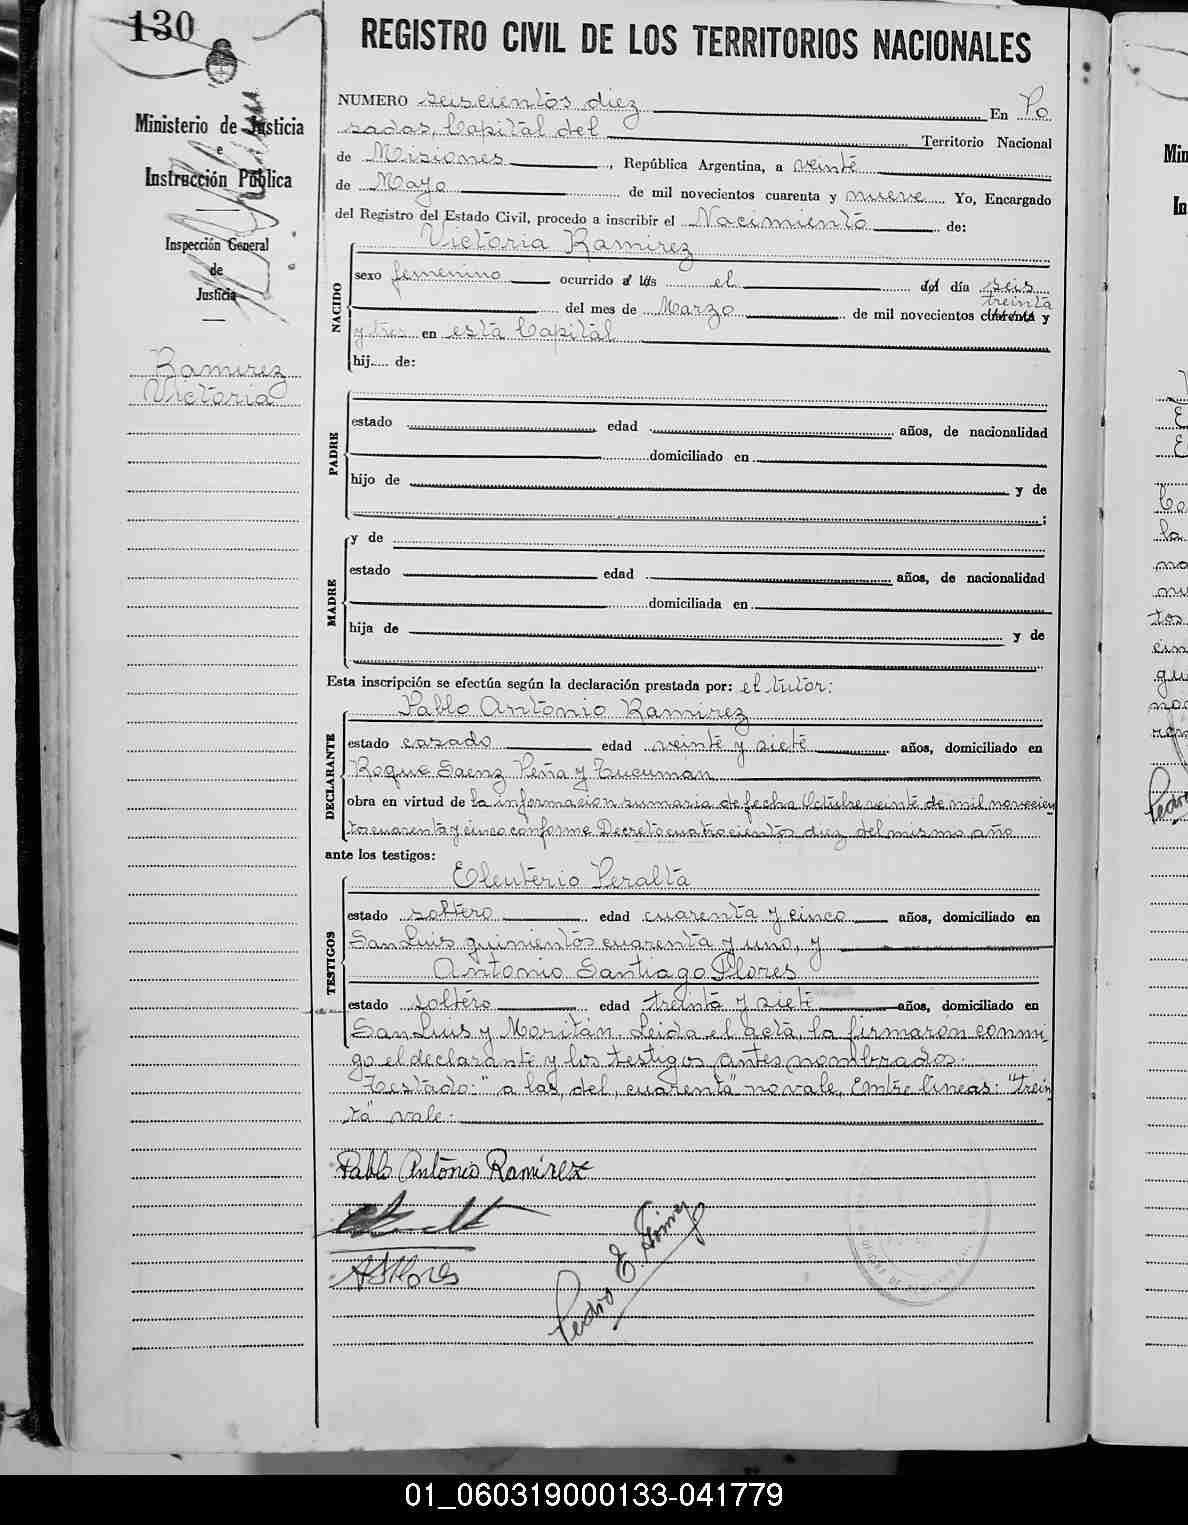 130
REGISTRO CIVIL DE LOS TERRITORIOS NACIONALES
Ministerio de Justicia
e
Instrucción Pública
Inspección General
de
Justicia
Ramirez
Victoria
NUMERO seiscientos diez En Po
sadas, Capital del Territorio Nacional
de Misiones, República Argentina, a veinte
de Mayo de mil novecientos cuarenta y nueve Yo, Encargado
del Registro del Estado Civil, procedo a inscribir el Nacimiento de:
Victoria Ramirez
NACIDO
sexo femenino ocurrido a las el del día seis
treinta
del mes de Marzo de mil novecientos cuarenta y
y tres en esta Capital
hij..... de:
PADRE
estado edad años, de nacionalidad
domiciliado en
hijo de y de
;
MADRE
y de
estado edad años, de nacionalidad
domiciliada en
hija de y de
Esta inscripción se efectúa según la declaración prestada por: el tutor:
Pablo Antonio Ramirez
DECLARANTE
estado casado edad veinte y siete años, domiciliado en
Roque Saenz Peña y Tucuman
obra en virtud de la informacion sumaria de fecha Octubre veinte de mil novecien
tos cuarenta y cinco conforme Decreto cuatrocientos diez del mismo año
ante los testigos:
Eleuterio Peralta
TESTIGOS
estado soltero edad cuarenta y cinco años, domiciliado en
San Luis quinientos cuarenta y uno, y
Antonio Santiago Flores
estado soltero edad treinta y siete años, domiciliado en
San Luis y Moritán. Leida el acta la firmaron conmi-
go el declarante y los testigos antes nombrados.
Testado: "a las, del, cuarenta" no vale. Entre lineas: "trein
ta" vale.
Pablo Antonio Ramirez
A S Flores
Pedro E.
01_060319000133-041779